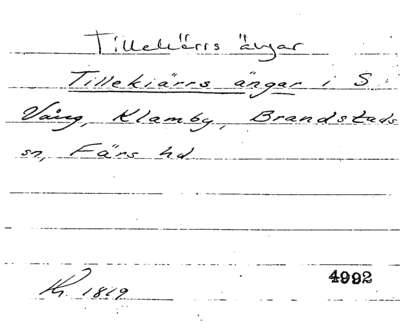 Tillekärrs ängar
Tillekiärrs ängar i S.
Vång, Klamby, Brandstads
sn, Färs hd
4992
Kr. 1819